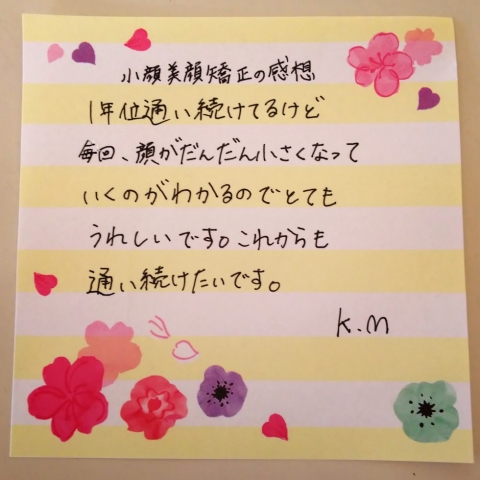 小顔美顔矯正の感想
1年位通い続けてるけど
毎回、顔がだんだん小さくなって
いくのがわかるのでとても
うれしいです。これからも
通い続けたいです。
K.M